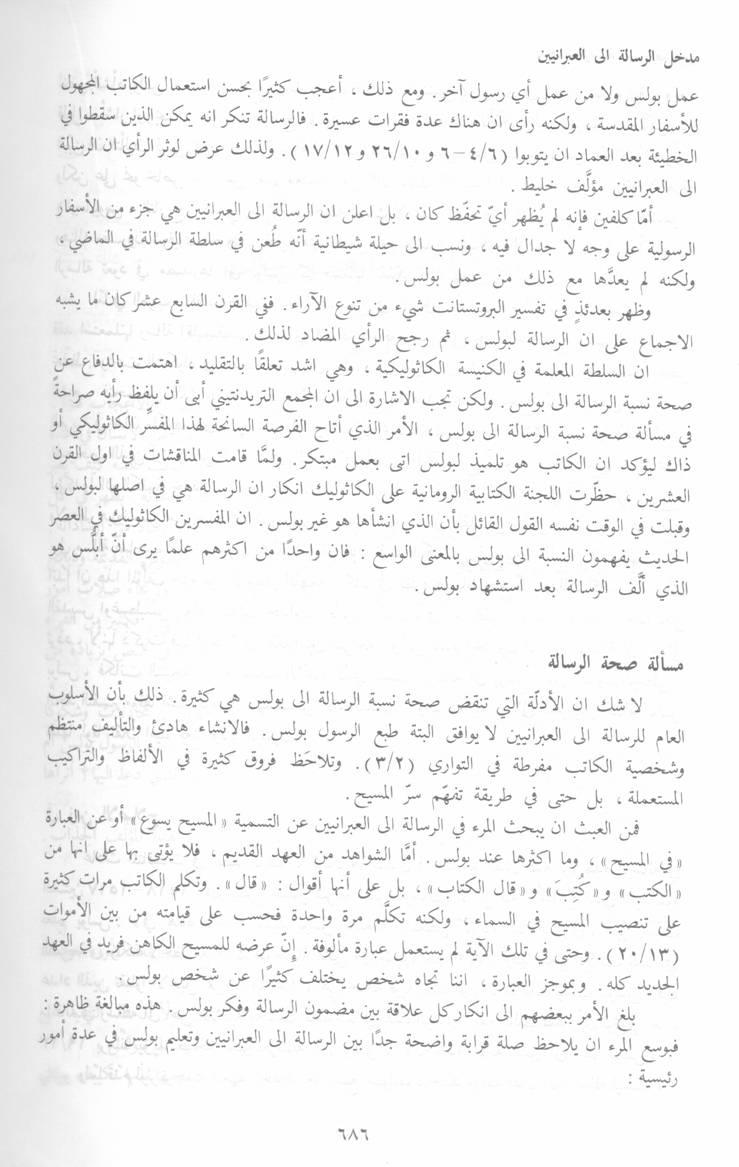 مدخل الرسالة الى العبرانيين
عمل بولس ولا من عمل أي رسول آخر. ومع ذلك ، أعجب كثيرًا بحسن استعمال الكاتب المجهول
للأسفار المقدسة ، ولكنه رأى ان هناك عدة فقرات عسيرة . فالرسالة تنكر انه يمكن الذين سقطوا في
الخطيئة بعد العماد ان يتوبوا (٤/٦ – ٦ و ٢٦/١٠ و ١٧/١٢ ). ولذلك عرض لوثر الرأي ان الرسالة
الى العبرانيين مؤلَّف خليط .
أمّا كلفين فإنه لم يُظهر أيّ تحفّظ كان ، بل اعلن ان الرسالة الى العبرانيين هي جزء من الأسفار
الرسولية على وجه لا جدال فيه ، ونسب الى حيلة شيطانية أنّه طُعن في سلطة الرسالة في الماضي ،
ولكنه لم يعدَّها مع ذلك من عمل بولس .
وظهر بعدئذٍ في تفسير البروتستانت شيء من تنوع الآراء . ففي القرن السابع عشر كان ما يشبه
الاجماع على ان الرسالة لبولس ، ثم رجح الرأي المضاد لذلك .
ان السلطة المعلمة في الكنيسة الكاثوليكية ، وهي اشد تعلقًا بالتقليد ، اهتمت بالدفاع عن
صحة نسبة الرسالة الى بولس . ولكن تجب الاشارة الى ان المجمع التريدنتيني أبى أن يلفظ رأيه صراحةً
في مسألة صحة نسبة الرسالة الى بولس ، الأمر الذي أتاح الفرصة السانحة لهذا المفسِّر الكاثوليكي أو
ذاك ليؤكد ان الكاتب هو تلميذ لبولس اتى بعمل مبتكر. ولمَّا قامت المناقشات في اول القرن
العشرين ، حظّرت اللجنة الكتابية الرومانية على الكاثوليك انكار ان الرسالة هي في اصلها لبولس ،
وقبلت في الوقت نفسه القول القائل بأن الذي انشأها هو غير بولس . ان المفسرين الكاثوليك في العصر
الحديث يفهمون النسبة الى بولس بالمعنى الواسع : فان واحدًا من اكثرهم علمًا يرى أنّ أبلُّس هو
الذي ألَّف الرسالة بعد استشهاد بولس .
مسألة صحة الرسالة
لا شك ان الأدلّة التي تنقض صحة نسبة الرسالة الى بولس هي كثيرة . ذلك بأن الأسلوب
العام للرسالة الى العبرانيين لا يوافق البتة طبع الرسول بولس . فالانشاء هادئ والتأليف منتظم
وشخصية الكاتب مفرطة في التواري (٣/٢). وتلاحَظ فروق كثيرة في الألفاظ والتراكيب
المستعملة ، بل حتى في طريقة تفهّم سرّ المسيح .
فمن العبث ان يبحث المرء في الرسالة الى العبرانيين عن التسمية «المسيح يسوع» أو عن العبارة
«في المسيح» ، وما اكثرها عند بولس . أمَّا الشواهد من العهد القديم ، فلا يؤتى بها على انها من
«الكتب» و«كُتِبَ» و«قال الكتاب» ، بل على أنها أقوال : «قال». وتكلم الكاتب مرات كثيرة
على تنصيب المسيح في السماء ، ولكنه تكلَّم مرة واحدة فحسب على قيامته من بين الأموات
(٢٠/١٣). وحتى في تلك الآية لم يستعمل عبارة مألوفة . إنّ عرضه للمسيح الكاهن فريد في العهد
الجديد كله . وبموجز العبارة ، اننا تجاه شخص يختلف كثيرًا عن شخص بولس .
بلغ الأمر ببعضهم الى انكار كل علاقة بين مضمون الرسالة وفكر بولس . هذه مبالغة ظاهرة :
فبوسع المرء ان يلاحظ صلة قرابة واضحة جدًا بين الرسالة الى العبرانيين وتعليم بولس في عدة أمور
رئيسية :
٦٨٦